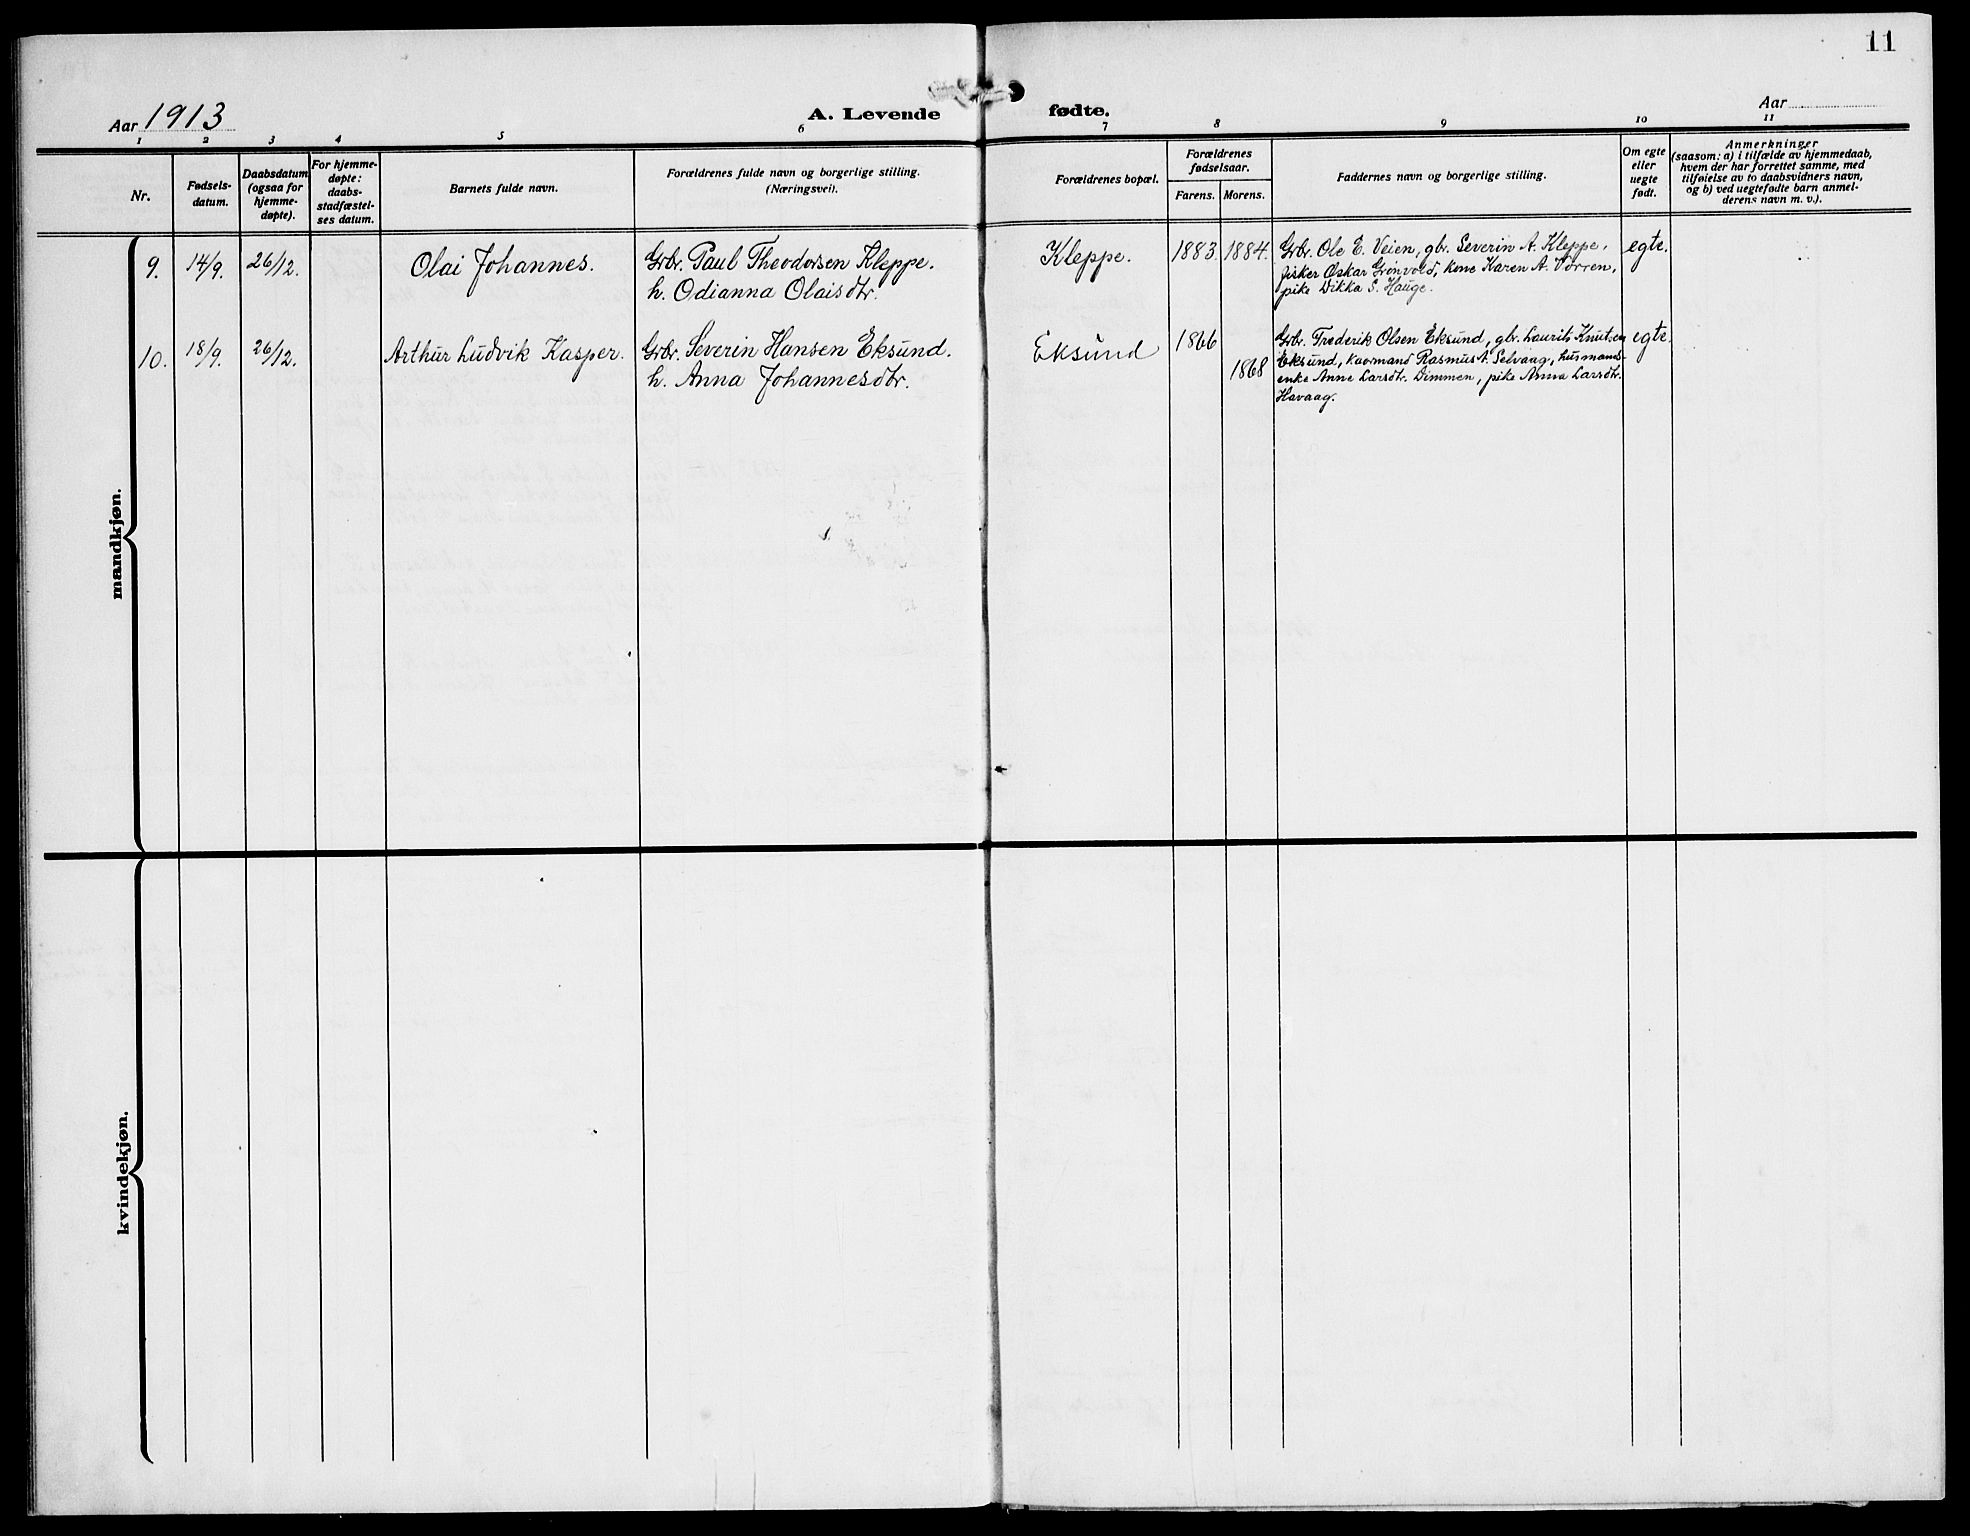 11
Aar 1913
A. Levende fødte.
Aar
1 2 3 4 5 6 7 8 9 10 11
Nr.
Fødsels-
datum.
Daabsdatum
(ogsaa for
hjemme-
døpte).
For hjemme-
døpte:
daabs-
stadfæstel-
ses datum.
Barnets fulde navn.
Forældrenes fulde navn og borgerlige stilling.
(Næringsvei).
Forældrenes bopæl.
Forældrenes
fødselsaar.
Farens. Morens.
Faddernes navn og borgerlige stilling.
Om egte
eller
uegte
født.
Anmerkninger
(saasom: a) i tilfælde av hjemmedaab,
hvem der har forrettet samme, med
tilføielse av to daabsvidners navn,
og b) ved uegtefødte barn anmel-
derens navn m. v.).
mandkjøn.
9. 14/9. 26/12. Olai Johannes. Grbr. Paul Theodorsen Kleppe.
h. Odianna Olaisdtr.
Kleppe. 1883. 1884.
Grbr. Ole E. Veien, gbr. Severin A. Kleppe,
fisker Oskar Grønvold, kone Karen A. Vorren,
pike Dikka S. Hauge.
egte.
10. 18/9. 26/12. Arthur Ludvik Kasper. Grbr. Severin Hansen Eksund.
h. Anna Johannesdtr.
Eksund 1866 1868
Grbr. Fredrik Olsen Eksund, gbr. Laurits Knutsen
Eksund, kaarmand Rasmus A. Selvaag, husmands-
enke Anne Larsdtr. Dimmen, pike Anna Larsdtr.
Havaag.
egte.
kvindekjøn.